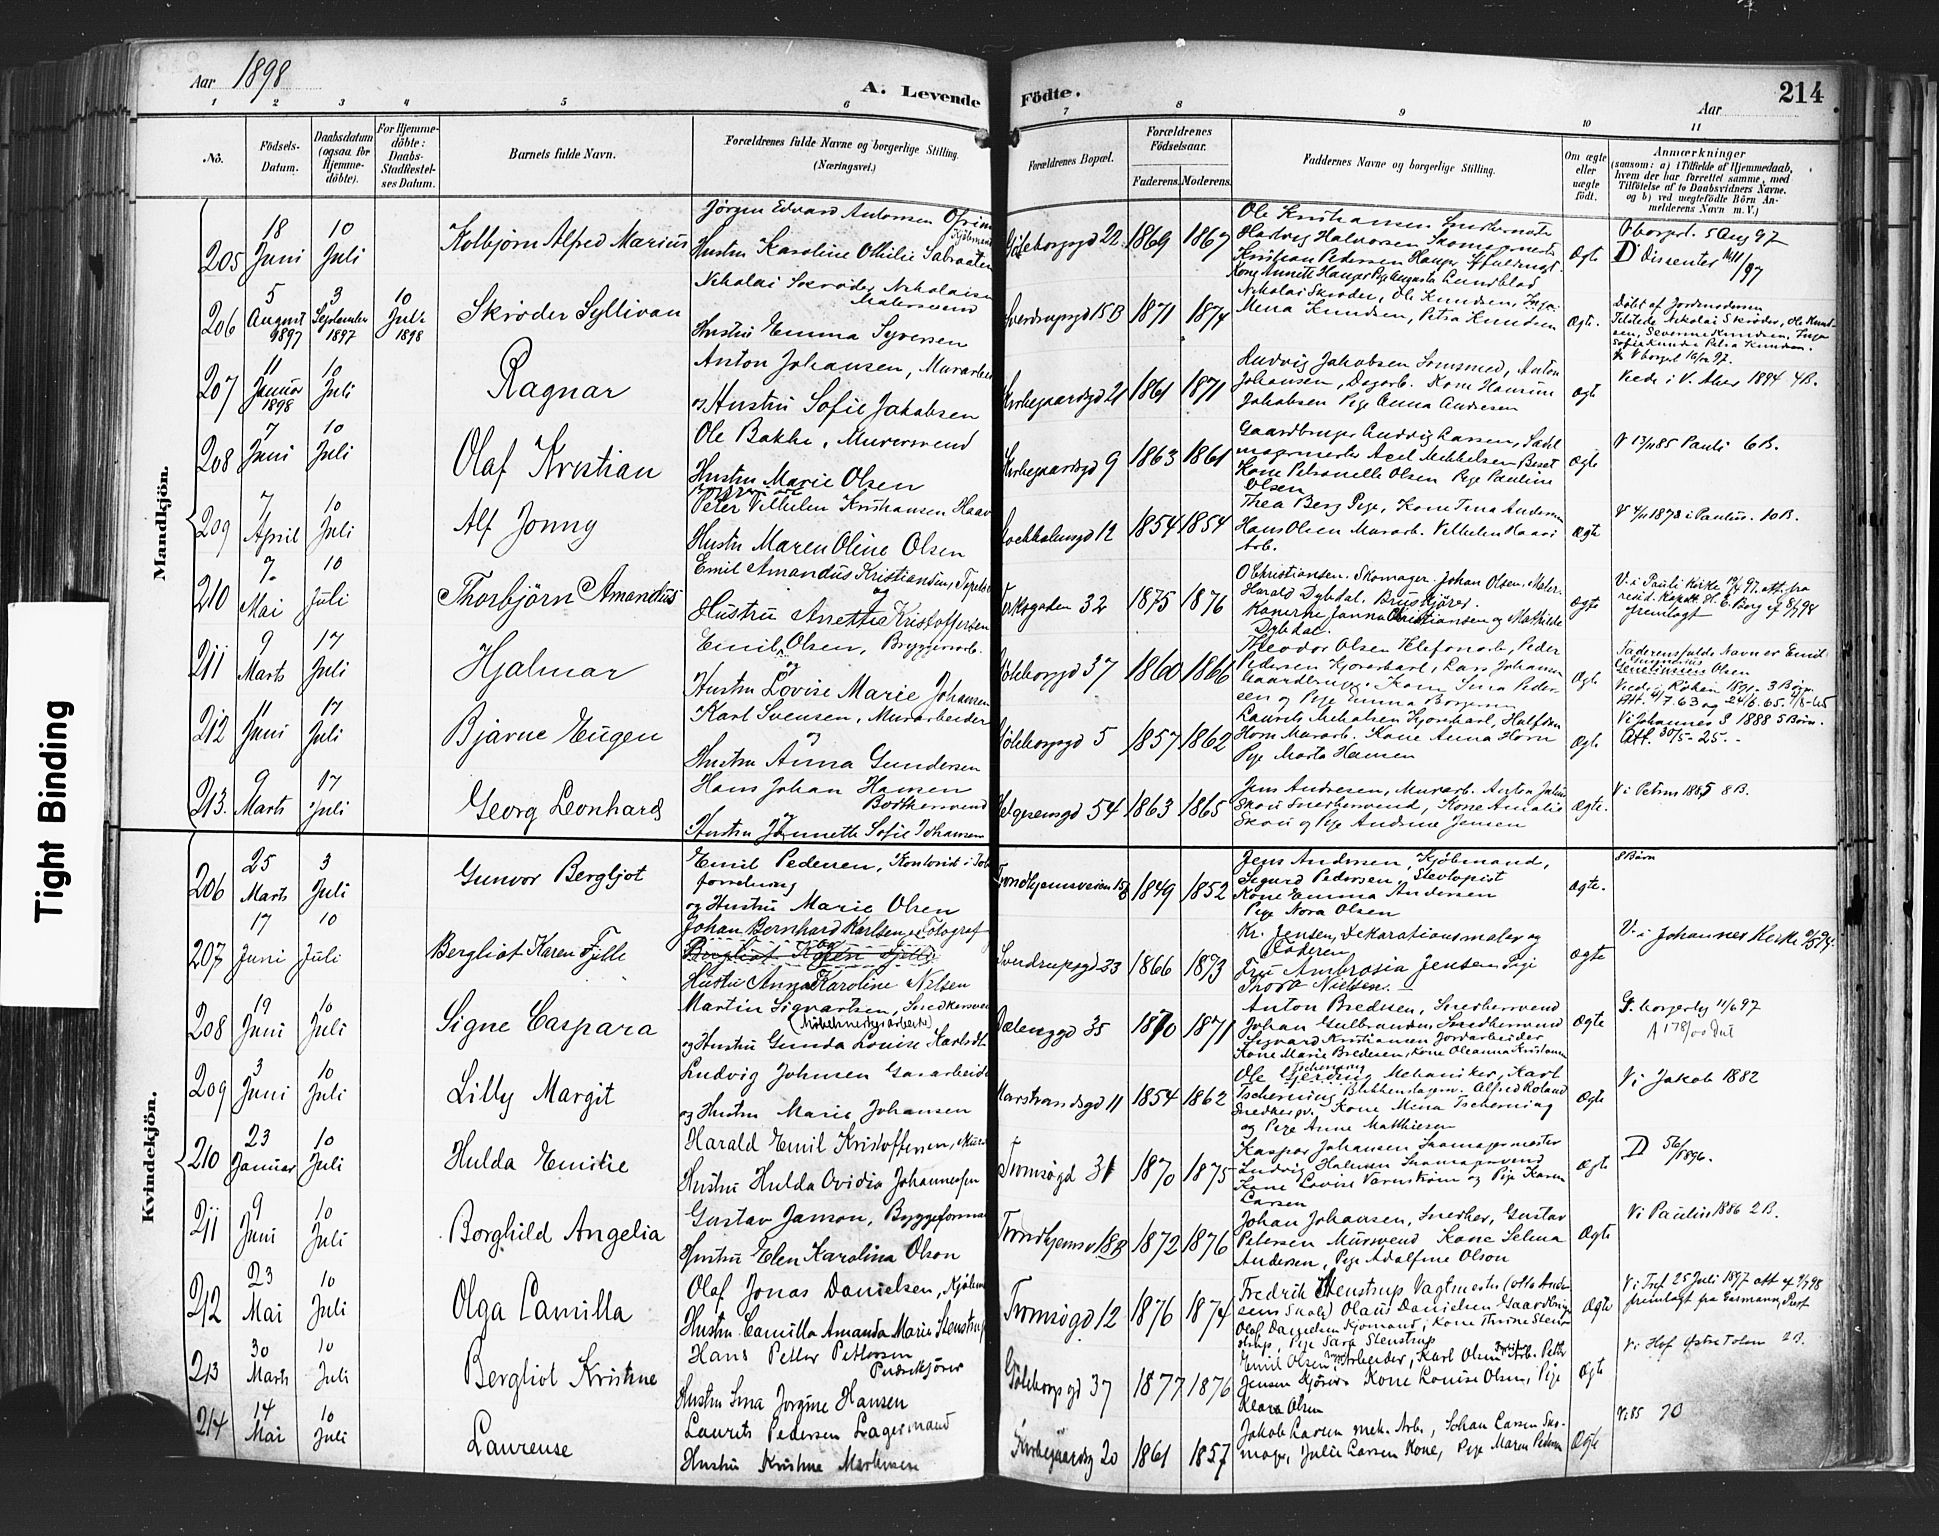 Aar 1898
A. Levende Födte.
Aar 214
1 2 3 4 5 6 7 8 9 10 11
No.
Födsels-Datum.
Daabsdatum (ogsaa for Hjemme-döbte).
For Hjemme-döbte: Daabs-Stadfæstel-ses Datum.
Barnets fulde Navn.
Forældrenes fulde Navne og borgerlige Stilling. (Næringsvei.)
Forældrenes Bopæl.
Forældrenes Födselsaar.
Faderens. Moderens.
Faddernes Navne og borgerlige Stilling.
Om ægte eller uægte født.
Anmærkninger
(saasom: a) i Tilfælde af Hjemmedaab,
hvem der har forrettet samme, med
Tilföielse af to Daabsvidners Navne,
og b) ved uegtefödte Börn An-
melderens Navn m. V.)
Tight Binding
Mandkjön.
205 18 Juni 10 Juli Kolbjörn Alfred Marius
Jörgen Edvard Antonsen
Hustru Karoline Othilie
22 1869 1867
Ole Kristiansen
Kristian Pedersen Hauger
Kone Annette Hauger Pige Augusta Lundblad
Ægte
V borgerl. 5 Aug 97
D Dissenter
206 5 August 1897 3 September 1897 10 Juli 1898 Skröder Syllivan
Nikolai Skröder Nikolaisen
Malersvend
Hustru Emma Syversen
Sverdrupsgd 15B 1871 1874
Nikolai Skröder, Ole Knudsen, Inga
Mena Knudsen, Petra Knudsen
Ægte.
Döbt af Jordmoderen
Tilstede Nikolai Skröder, Ole Knud-
sen, Severine Knudsen, Inga
207 11 Januar 1898 10 Juli Ragnar
Anton Johansen, Murarbeid
og Hustru Sofie Jakobsen
Kirkegaardsgd 21 1861 1871
Ludvig Jakobsen, Anton
Johansen, Dagarb. Kone Hansine
Jakobsen Pige Anna Andresen
Ægte
Viede i V. Aker 1894 4B.
208 7 Juni 10 Juli Olaf Kristian
Ole Bakke, Murersvend
Hustru Marie Olsen
Kirkegaardsgd 9 1863 1861
Gaardbruger Ludvig Larsen, Sadel
magermester Axel Mikkelsen
Kone Petronelle Olsen Pige Pauline
Olsen
Ægte
V 13/1 85 Pauli 6B.
209 7 April 10 Juli Alf Jonny
Peter Vilhelm Kristiansen Haav
Hustru Maren Oline Olsen
Stockholmsgd 12 1854 1854
Thea Berg Pige, Kone Tina Andersen
Hans Olsen Murarb. Vilhelm Haavi
Arb.
Ægte
V 4/11 1878 i Paulus. 10B.
210 7 Mai 10 Juli Thorbjörn Amandus
Emil Amandus Kristiansen,
og
Hustru Anette Kristoffersen
32 1875 1876
O Christiansen. Skomager. Johan Olsen. Maler.
Harald Dybdal. Bryskjörer.
Konerne Janna Christiansen og Mathilde
Dybdal.
Ægte
V. i Pauli Kirke 97. att. fra
resid. Kapell. H. E. Borg
fremlagt
211 9 Marts 17 Juli Hjalmar
Emil Olsen, Bryggeriarb.
og
Hustru Lovise Marie Johansen
Göteborgsgd 37 1860 1866
Theodor Olsen Telefonarb, Peder
Pedersen Kjörerkarl, Lars Johansen
Gaardbruger. Kone Sina Peder-
sen og Pige Emma Borgersen
Ægte
Faderens fulde Navn er Emil
Olsen
Viede i Röken 1891. 3 Börn.
Att. 4/7 63 og 24/6 65.
212 11 Juni 17 Juli Bjarne Eugen
Karl Svensen, Murarbeider
og
Hustru Anna Gundersen
Göteborgsgd 5 1857 1862
Laurits Mikalsen Kjörekarl, Halfdan
Horn Murarb. Kone Anna Horn
Pige Marta Hansen
Ægte
V i Johannes 1888 5 Börn.
Att. 30/5 - 25.
213. 9 Marts 17 Juli Georg Leonhard
Hans Johan Hansen
Bödkersvend
og
Hustru Jannette Sofie Johansen
Helgesensgd 54 1863 1865
Jens Andresen, Murarb. Anton Julius
Skou Snedkersvend, Kone Amalie
Skou og Pige Andrine Jensen
Ægte.
V i Petrus 1885 8B.
Kvindekjön.
206 25 Marts 3 Juli Gunvor Bergljot
Emil Pedersen, Kontorist i
forretning
og Hustru Marie Olsen
Trondhjemsveien 15B 1849 1852
Jens Andersen, Kjöbmand,
Sigurd Pedersen,
Kone Emma Andersen
Pige Nora Olsen
Ægte.
8 Börn
207 17 Juni 10 Juli Bergliot Karen Fjelle
Johan Bernhard Karlsen, Fotograf
Bergliot Karen Fjelle
og
Hustru Anna Karoline Nilsen
Sverdrupsgd 23 1866 1873
Kr. Jensen, Dekorationsmaler og
Faderen
Fru Ambrosia Jensen Pige
Thora Nielsen.
Ægte
V. i Johannes Kirke
208 19 Juni 10 Juli Signe Caspara
Martin Sigvartsen, Snedkersve
(Möbelsnedkerarbeide)
og Hustru Gunda Louise Karlsdt
Dælenggd 35 1870 1871
Anton Bredesen, Snedkersvend
Johan Gulbrandsen Snedkersvend
Sigvard Kristiansen Jordarbeider
Kone Marie Bredesen, Kone Oleanna Kristiansen
Ægte
borgerlig 11/6 97
209 3 Juni 10 Juli Lilly Margit
Ludvig Johnsen Gasarbeide
og Hustru Marie Johansen
Marstrandsgd 11 1854 1862
Ole Gjerding Mekaniker, Karl
Tscherning Blikkenslager. Alfred Roland
Snedkersv. Kone Mina Tscherning
og Pige Anne Matthiesen
Ægte
V i Jakob 1882
210 23 Januar 10 Juli Hulda Emilie
Harald Emil Kristoffersen,
Hustru Hulda Ovidia Johannessen
Tromsögd 31 1870 1875
Kaspar Johansen Skomagermester
Ludvig Halvorsen Skomagersvend
Kone Lovise Varnström og Pige Karen
Larsen
Ægte
D 56/1896.
211 9 Juni 10 Juli Borghild Angelia
Gustav Janson, Byggeforman
Hustru Elen Karolina Olson
Trondhjemsv 18B 1872 1876
Johan Johansen, Snedker, Gustav
Petersen Mursvend Kone Selma
Andersen, Pige Adolfine Olson
Ægte
V i Paulus 1886 2B.
212 23 Mai 10 Juli Olga Camilla
Olaf Jonas Danielsen, Kjöbm
Hustru Camilla Amanda Marie Stenstrup
Tromsögd 12 1876 1874
Fredrik Stenstrup Vagtmester (Otto Ander-
sens Skole) Olaus Danielsen Gaardbruger
Olaf Danielsen Kjömand, Kone Thrine Sten-
strup, Pige Sara Stenstrup
Ægte
V i Tref 25 Juli 1897 att
fremlagt fra Garmann, Prest
213 30 Marts 10 Juli Bergliot Kristine
Hans Petter Pettersen
Hustru Sina Jorgine Hansen
Göteborgsgd 37 1877 1876
Emil Olsen, Arbeider, Karl Olsen Arb. Petter
Jensen Kjörer Kone Louise Olsen, Pige
Klara Olsen
Ægte
V i Hof Östre Toten 2B.
214 14 Mai 10 Juli Laurense
Laurits Pedersen Lagermand
Hustru Kristine Martinsen
Kirkegaardsg 20 1861 1857
Jakob Larsen mek. Arb., Johan Larsen Sko-
mager, Julie Larsen Kone, Pige Maren Pedersen
Ægte
V i 85